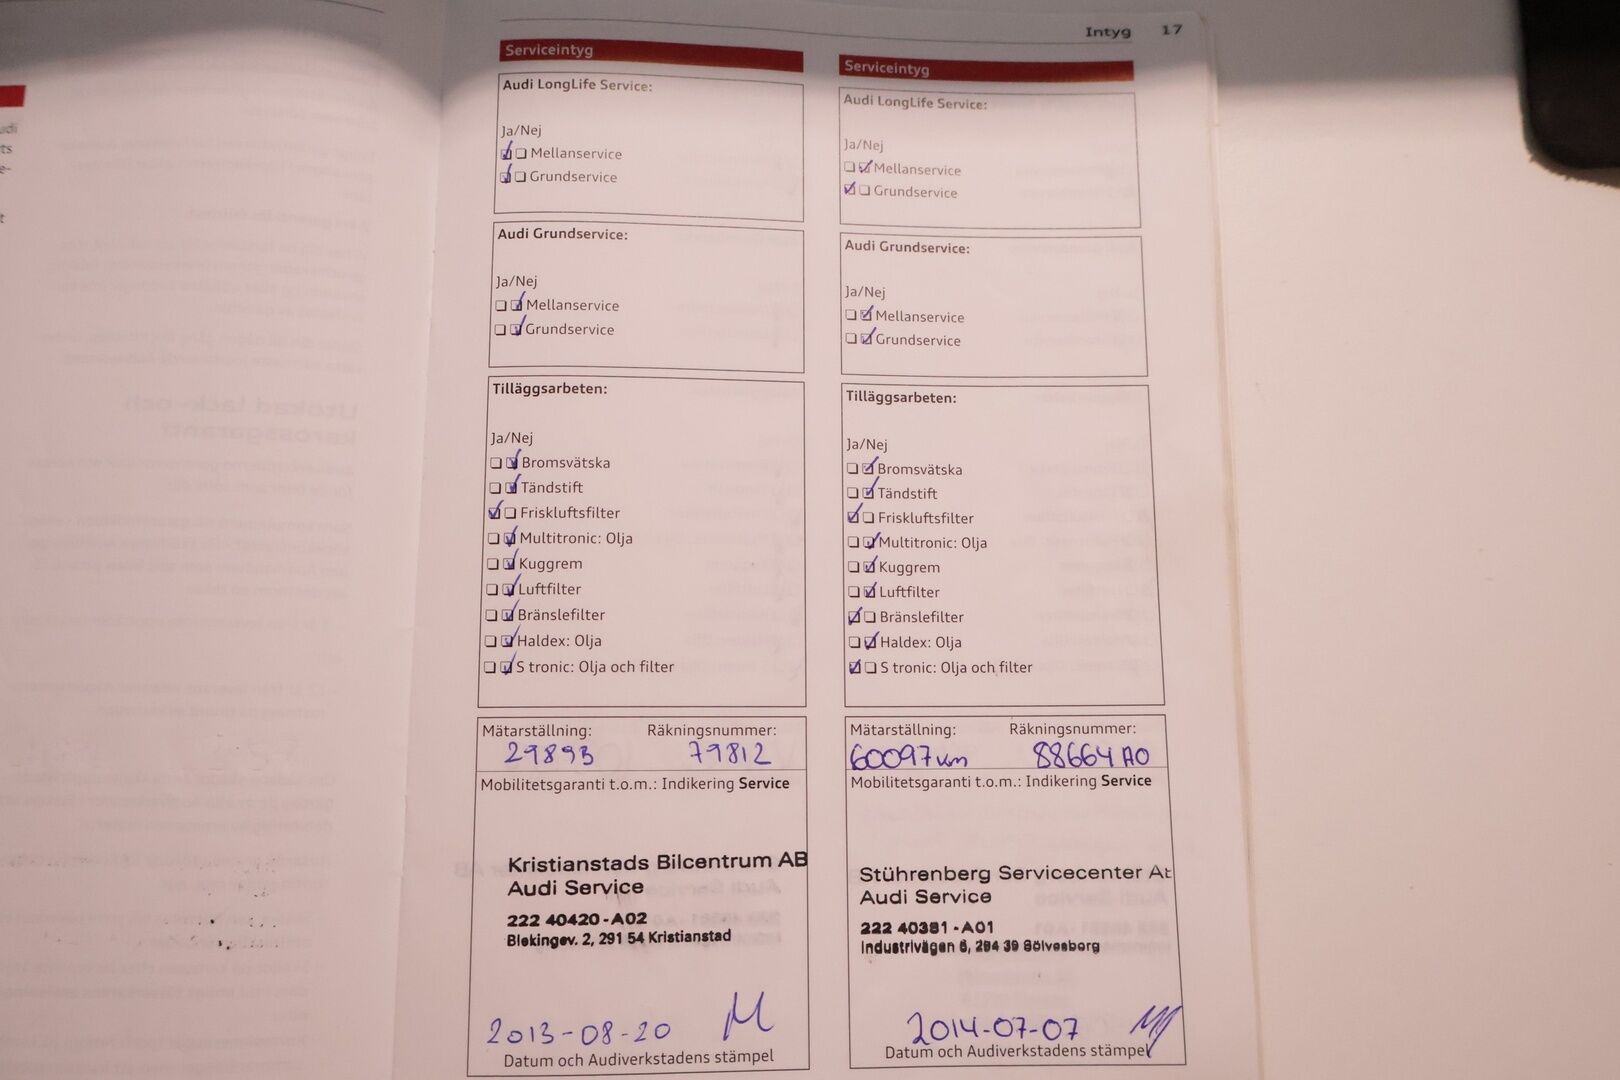 Intyg 17
Serviceintyg
Audi LongLife Service:
Ja/Nej
Mellanservice
Grundservice
Audi Grundservice:
Ja/Nej
Mellanservice
Grundservice
Tilläggsarbeten:
Ja/Nej
Bromsvätska
Tändstift
Friskluftsfilter
Multitronic: Olja
Kuggrem
Luftfilter
Bränslefilter
Haldex: Olja
S tronic: Olja och filter
Mätarställning: Räkningsnummer:
29893 79812
Mobilitetsgaranti t.o.m.: Indikering Service
Kristianstads Bilcentrum AB
Audi Service
222 40420-A02
Blekingev. 2, 291 54 Kristianstad
2013-08-20
Datum och Audiverkstadens stämpel
Serviceintyg
Audi LongLife Service:
Ja/Nej
Mellanservice
Grundservice
Audi Grundservice:
Ja/Nej
Mellanservice
Grundservice
Tilläggsarbeten:
Ja/Nej
Bromsvätska
Tändstift
Friskluftsfilter
Multitronic: Olja
Kuggrem
Luftfilter
Bränslefilter
Haldex: Olja
S tronic: Olja och filter
Mätarställning: Räkningsnummer:
60097 km 88664 AO
Mobilitetsgaranti t.o.m.: Indikering Service
Stührenberg Servicecenter
Audi Service
222 40381-A01
Industrivägen 6, 294 39 Sölvesborg
2014-07-07
Datum och Audiverkstadens stämpel